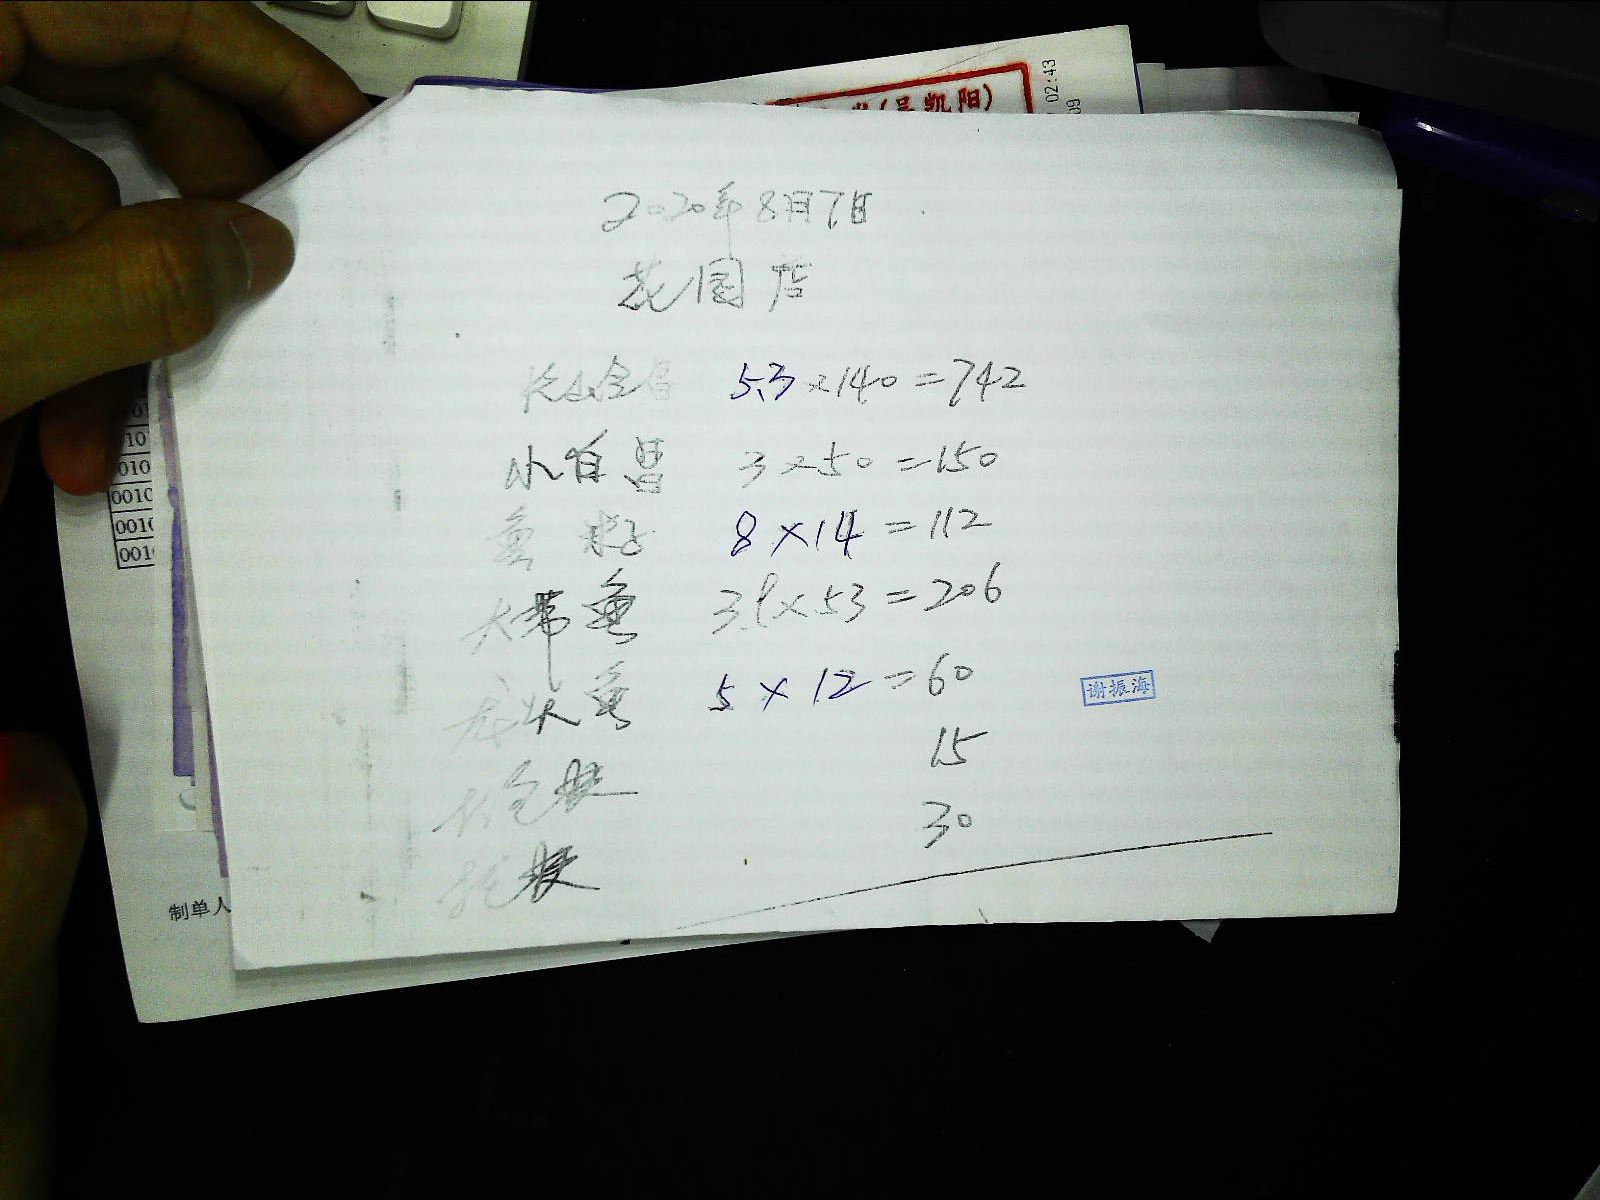 (吴凯阳)
02:43
09
2020年8月7日
花园店
5.3×140=742
小白昌 3×50=150
鱼籽 8×14=112
大带鱼 3.9×53=206
龙头鱼 5×12=60
谢振海
15
30
10
010
0010
001
001
制单人